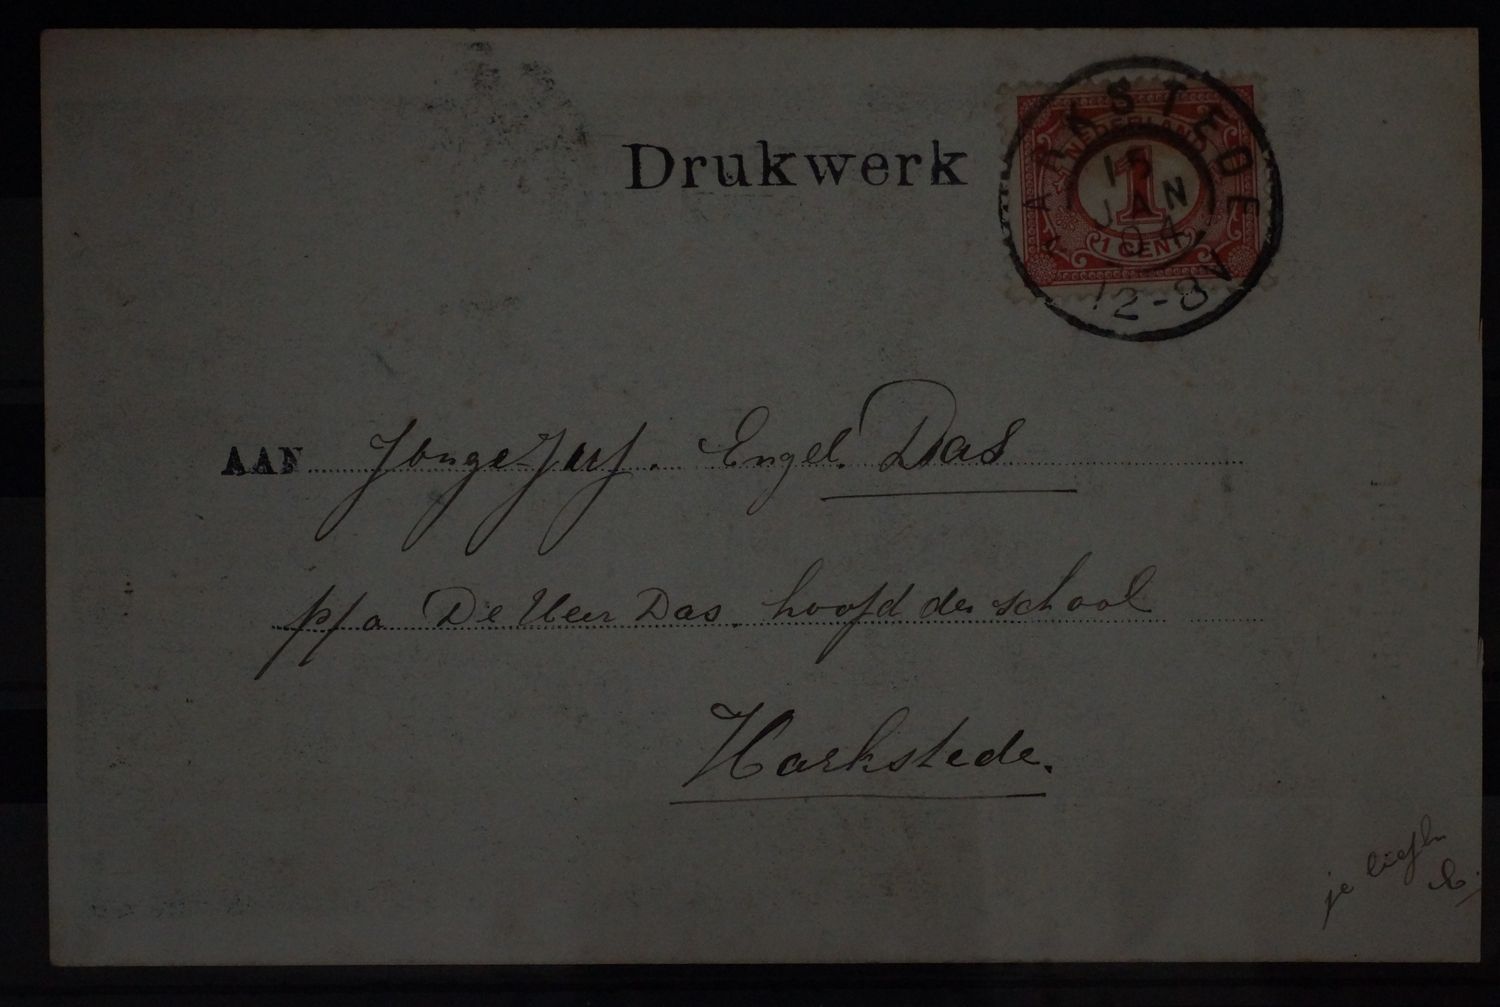 Drukwerk
NEDERLAND
1
1 CENT
HARKSTEDE
15
JAN
04
12-8V
AAN Jonge Juf. Engel. Das
p/a De Heer Das. hoofd der school
Harkstede.
je